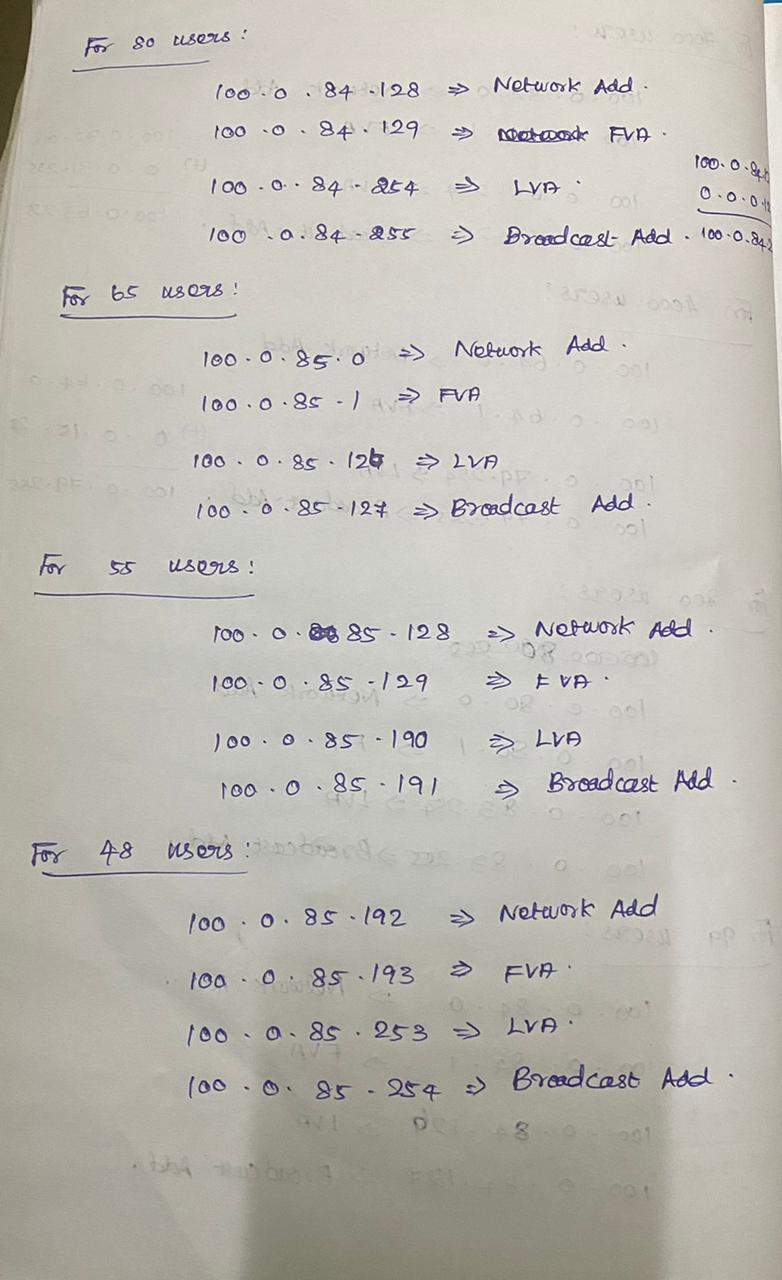 For 80 users :
100.0.84.128 ⇒ Network Add.
100.0.84.129 ⇒ FVA.
100.0.84.254 ⇒ LVA.
100.0.84.255 ⇒ Broadcast Add.
100.0.84
0.0.0.1
100.0.84.2
For 65 users :
100.0.85.0 ⇒ Network Add.
100.0.85.1 ⇒ FVA
100.0.85.126 ⇒ LVA
100.0.85.127 ⇒ Broadcast Add.
For 55 users :
100.0.85.128 ⇒ Network Add.
100.0.85.129 ⇒ FVA.
100.0.85.190 ⇒ LVA
100.0.85.191 ⇒ Broadcast Add.
For 48 users :
100.0.85.192 ⇒ Network Add
100.0.85.193 ⇒ FVA.
100.0.85.253 ⇒ LVA.
100.0.85.254 ⇒ Broadcast Add.